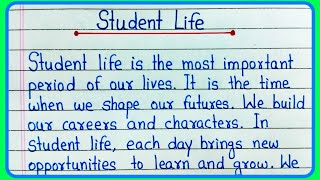 Student Life
Student life is the most important
period of our lives. It is the time
when we shape our futures. We build
our careers and characters. In
student life, each day brings new
opportunities to learn and grow. We